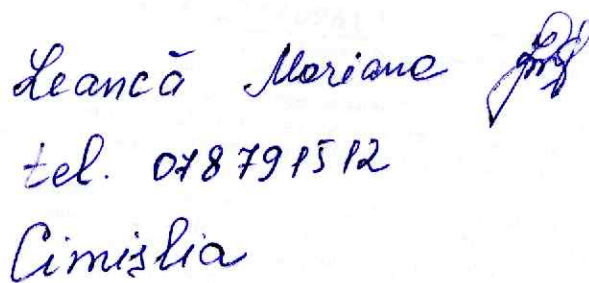 Leancă Mariana
tel. 078791512
Cimişlia